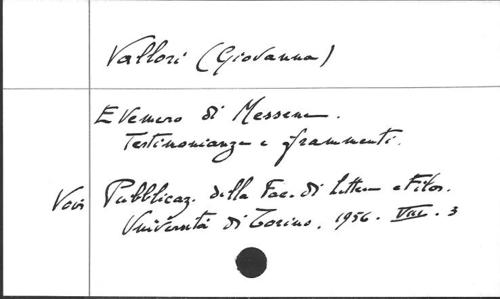 Vallori (Giovanna)
Evemero di Messene.
Testimonianze e frammenti.
Voir Pubblicaz. della Fac. di Lettere e Filos.
Università di Torino. 1956. VIII. 3